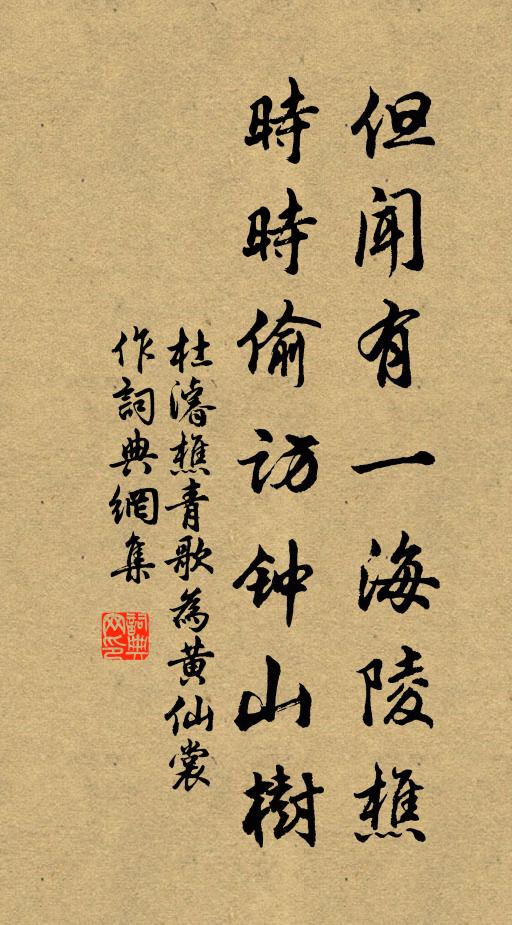 但聞有一海陵樵
時時偷訪钟山樹
杜濬樵青歌為黄仙裳
作詞典網集
詞典
网印